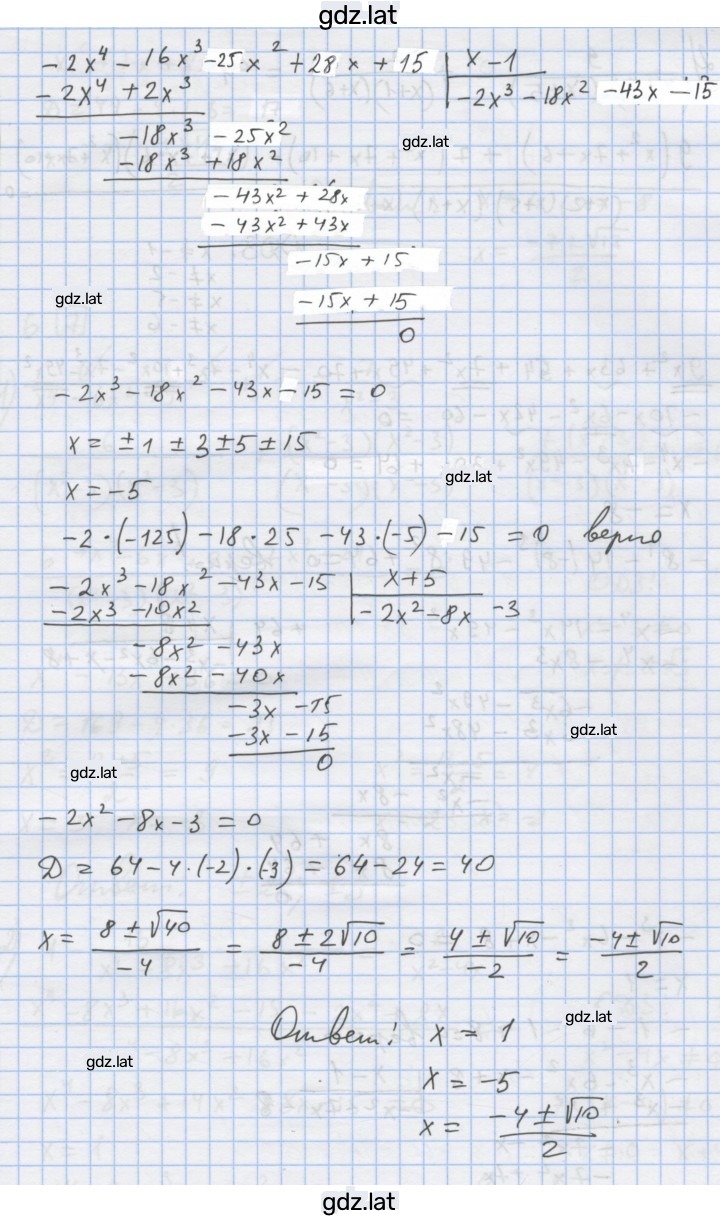 gdz.lat
- 2x⁴ - 16x³ - 25·x² + 28·x + 15 | x - 1
- 2x⁴ + 2x³ | -2x³ - 18x² - 43x - 15
- 18x³ - 25x²
gdz.lat
- 18x³ + 18x²
- 43x² + 28x
- 43x² + 43x
- 15x + 15
gdz.lat
- 15x + 15
0
- 2x³ - 18x² - 43x - 15 = 0
x = ± 1 ± 3 ± 5 ± 15
gdz.lat
x = -5
-2·(-125) - 18·25 - 43·(-5) - 15 = 0 верно
- 2x³ - 18x² - 43x - 15 | x + 5
- 2x³ - 10x² | - 2x² - 8x - 3
- 8x² - 43x
- 8x² - 40x
- 3x - 15
gdz.lat
- 3x - 15
0
gdz.lat
- 2x² - 8x - 3 = 0
D = 64 - 4·(-2)·(-3) = 64 - 24 = 40
x = (8 ± √40)/(-4) = (8 ± 2√10)/(-4) = (4 ± √10)/(-2) = (-4 ± √10)/2
gdz.lat
Ответ: x = 1
gdz.lat
x = -5
x = (-4 ± √10)/2
gdz.lat